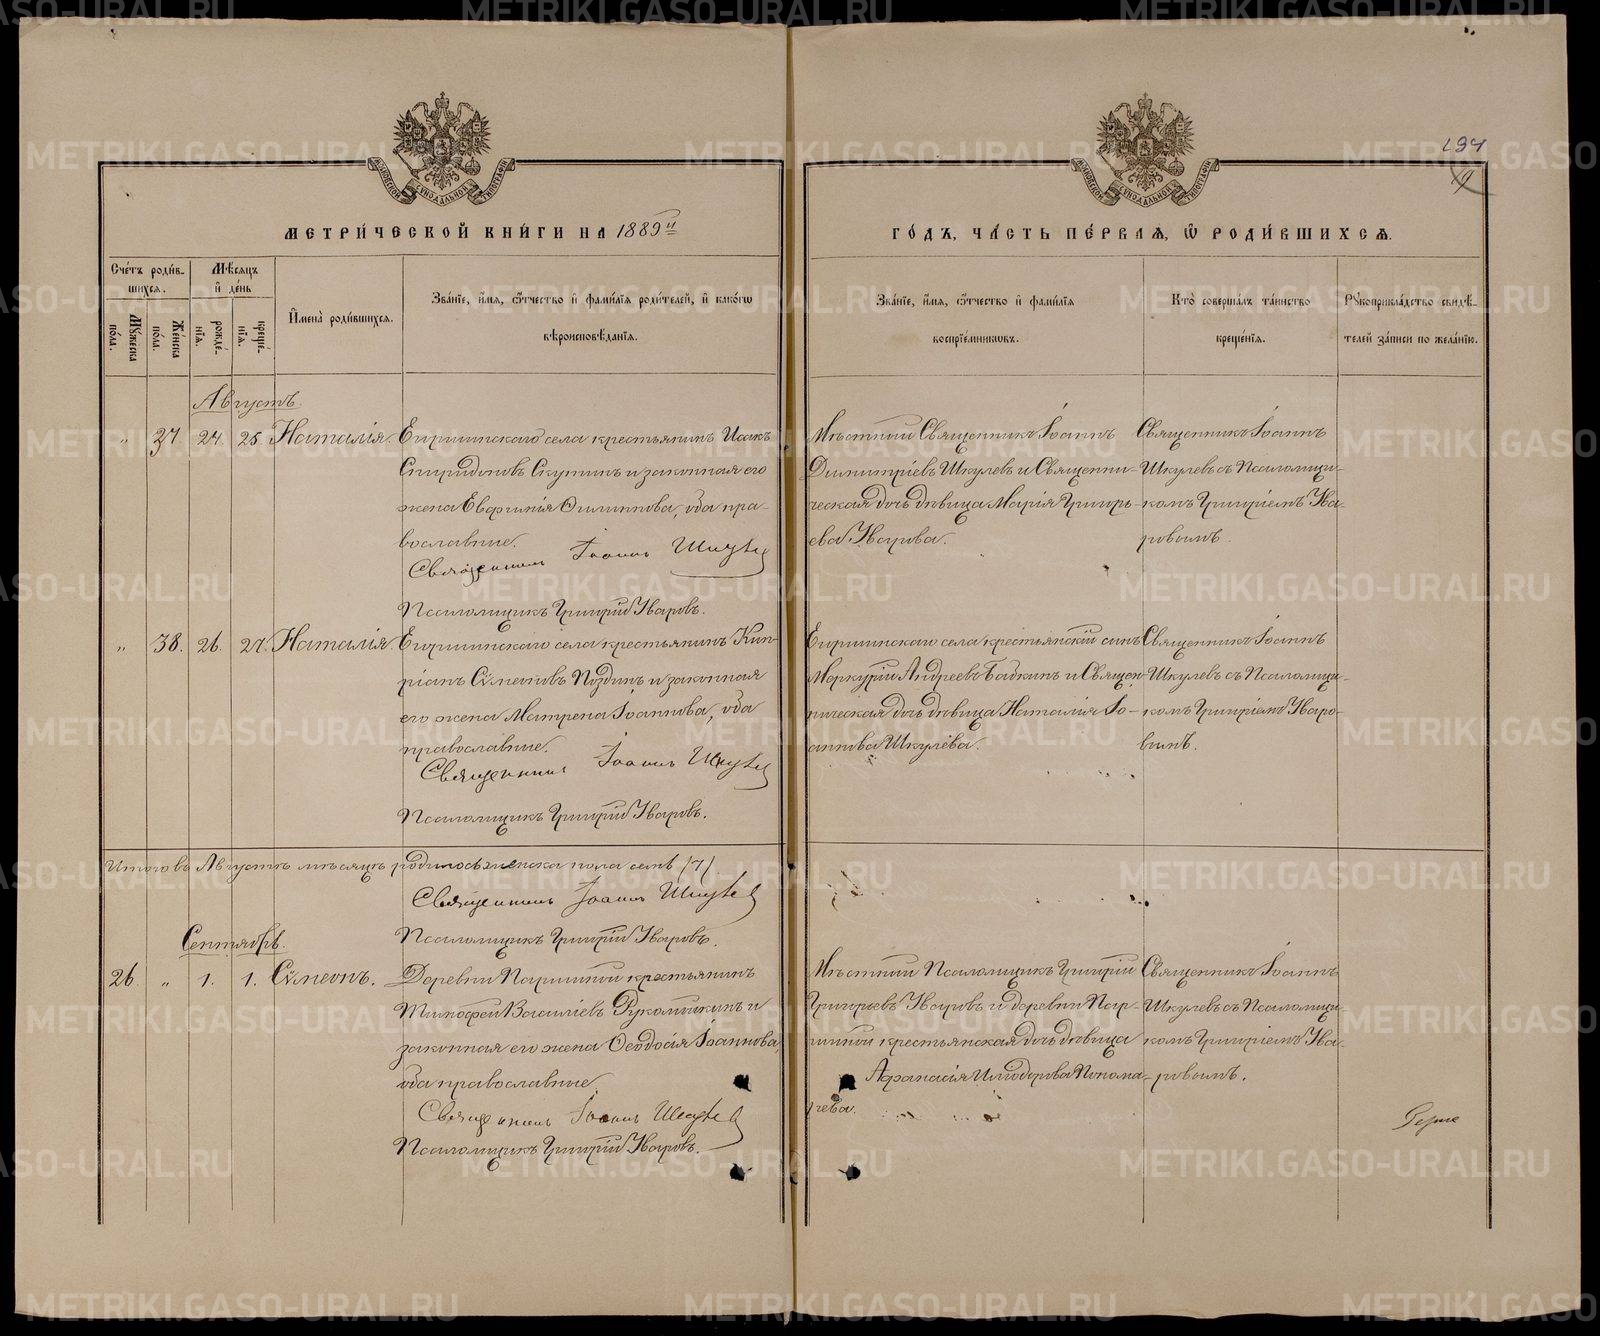 МЕТРИЧЕСКОЙ КНИГИ НА 1889й
ГОДЪ, ЧАСТЬ ПЕРВАЯ, Ѡ РОДИВШИХСЯ.
194
Счетъ родившихся.
Мужеска пола.
Женска пола.
Мѣсяцъ и день
рожденія.
крещенія.
Имена родившихся.
Званіе, имя, отчество и фамилія родителей, и какогѡ
вѣроисповѣданія.
Званіе, имя, отчество и фамилія
воспріемниковъ.
Кто совершалъ таинство
крещенія.
Рукоприкладство свидѣ-
телей записи по желанію.
Августъ.
" 37. 24. 25. Наталія.
села крестьянинъ Исакъ
Спиридоновъ Скутинъ и законная его
жена Евфимія Филиппова, оба пра-
вославные.
Священникъ Іоаннъ Шкулев
Псаломщикъ Григорій Уваровъ.
Мѣстный Священникъ Іоаннъ
Димитріевъ Шкулевъ и Священни-
ческая дочь дѣвица Марія Григорь-
ева Уварова.
Священникъ Іоаннъ
Шкулевъ съ Псаломщи-
комъ Григоріемъ Ува-
ровымъ.
" 38. 26. 27. Наталія.
села крестьянинъ Кип-
ріанъ Сѵмеоновъ Поздинъ и законная
его жена Матрена Іоаннова, оба
православные.
Священникъ Іоаннъ Шкулев
Псаломщикъ Григорій Уваровъ.
села крестьянскій сынъ
Меркурій Андреевъ Бабкинъ и Священ-
ническая дочь дѣвица Наталія Іо-
аннова Шкулева.
Священникъ Іоаннъ
Шкулевъ съ Псаломщи-
комъ Григоріемъ Уваро-
вымъ.
Итого въ Августѣ мѣсяцѣ родилось женска пола семь /7/.
Священникъ Іоаннъ Шкулев
Псаломщикъ Григорій Уваровъ.
Сентябрь.
26. " 1. 1. Сѵмеонъ.
Деревни крестьянинъ
Тимофей Василіевъ Рукомойкинъ и
законная его жена Ѳеодосія Іоаннова,
оба православные.
Священникъ Іоаннъ Шкулев
Псаломщикъ Григорій Уваровъ.
Мѣстный Псаломщикъ Григорій
Григорьевъ Уваровъ и деревни
крестьянская дочь дѣвица
Афанасія Илиодорова Понома-
рева.
Священникъ Іоаннъ
Шкулевъ съ Псаломщи-
комъ Григоріемъ Ува-
ровымъ.
METRIKI.GASO-URAL.RU